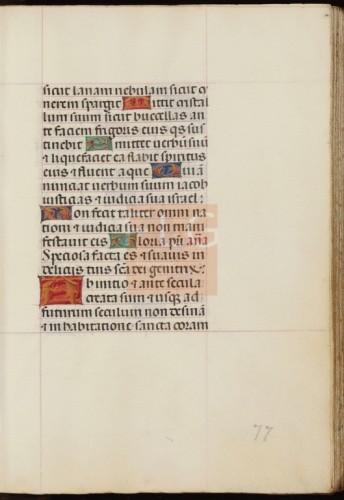 sicut lanam nebulam sicut ci
nerem spargit Mittit cristal
lum suum sicut bucellas an
te faciem frigoris eius q̄s sus
tinebit Emittet verbū suū
& liquefaciet ea flabit spiritus
eius & fluent aque Qui ā
nunciat verbum suum iacob
iusticias & iudicia sua israel:
Non fecit taliter omni na
tioni & iudicia sua non mani
festavit eis Gloria pr̄i an̄a
Speciosa facta es & suavis in
deliciis tuis sc̄a dei genitrix:
Ab initio & ante secula
creata sum & usq̄ ad
futurum seculum non desinā
& in habitatione sancta coram
77